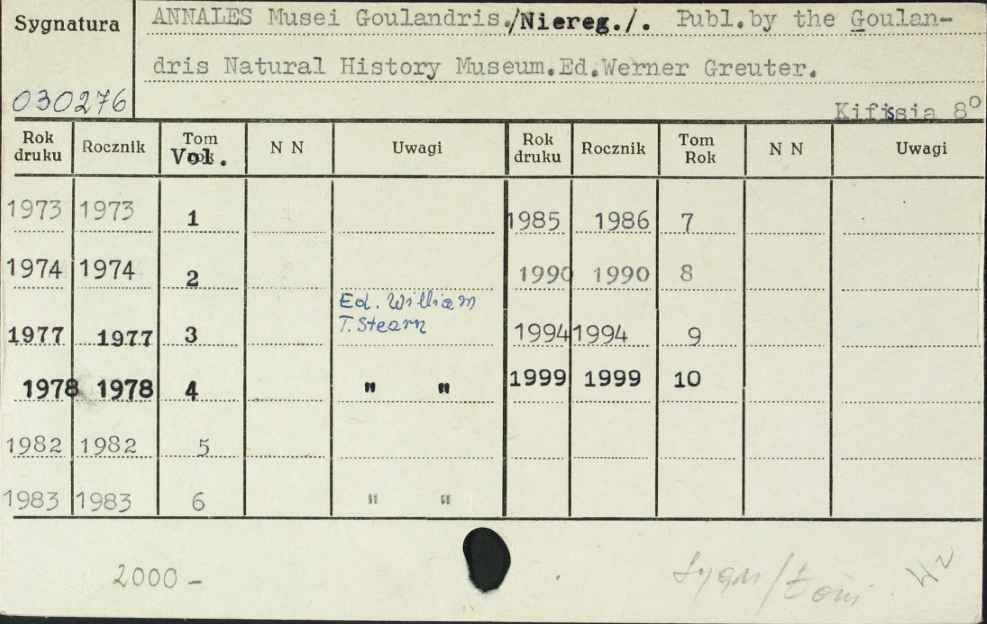 Sygnatura ANNALES Musei Goulandris./Niereg./. Publ.by the Goulan-
dris Natural History Museum.Ed.Werner Greuter.
030276 Kifissia 8°
Rok druku Rocznik Tom Vol. N N Uwagi Rok druku Rocznik Tom Rok N N Uwagi
1973 1973 1 1985 1986 7
1974 1974 2 1990 1990 8
Ed. William
T. Stearn
1977 1977 3 1994 1994 9
1978 1978 4 " " 1999 1999 10
1982 1982 5
1983 1983 6 " "
2000 -